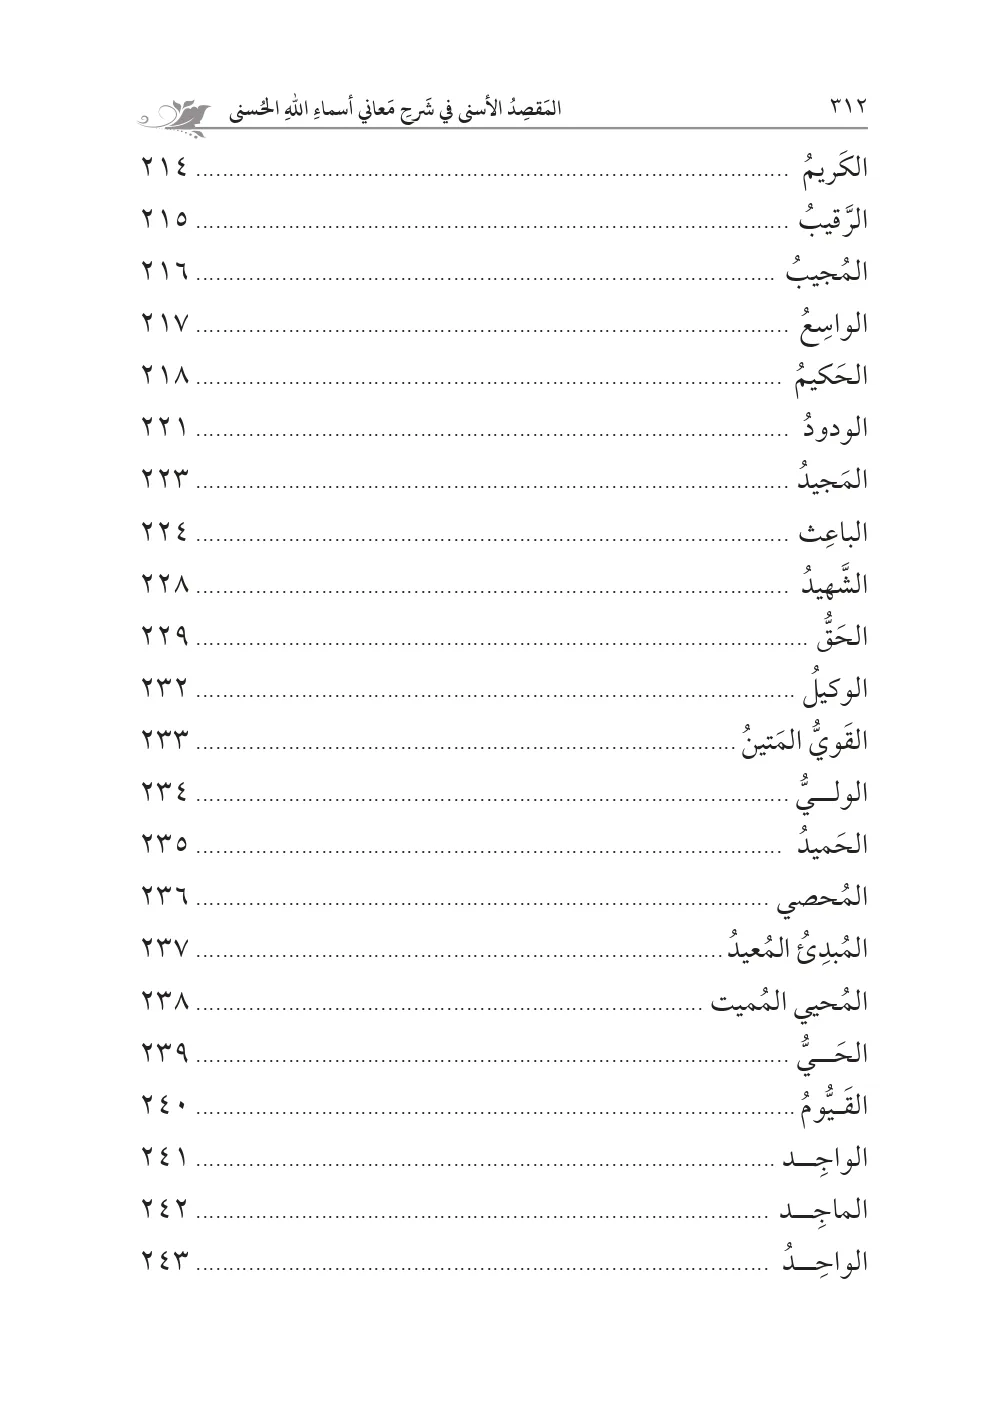 ٣١٢ المَقصِدُ الأسنى في شَرحِ مَعاني أسماءِ اللهِ الحُسنى
الكَريمُ ................ ٢١٤
الرَّقيبُ ................ ٢١٥
المُجيبُ ................ ٢١٦
الواسِعُ ................ ٢١٧
الحَكيمُ ................ ٢١٨
الودودُ ................ ٢٢١
المَجيدُ ................ ٢٢٣
الباعِث ................ ٢٢٤
الشَّهيدُ ................ ٢٢٨
الحَقُّ ................ ٢٢٩
الوكيلُ ................ ٢٣٢
القَويُّ المَتينُ ................ ٢٣٣
الولـــيُّ ................ ٢٣٤
الحَميدُ ................ ٢٣٥
المُحصي ................ ٢٣٦
المُبدِئُ المُعيدُ ................ ٢٣٧
المُحيي المُميت ................ ٢٣٨
الحَـــيُّ ................ ٢٣٩
القَـيُّومُ ................ ٢٤٠
الواجِـــد ................ ٢٤١
الماجِـــد ................ ٢٤٢
الواحِـــدُ ................ ٢٤٣